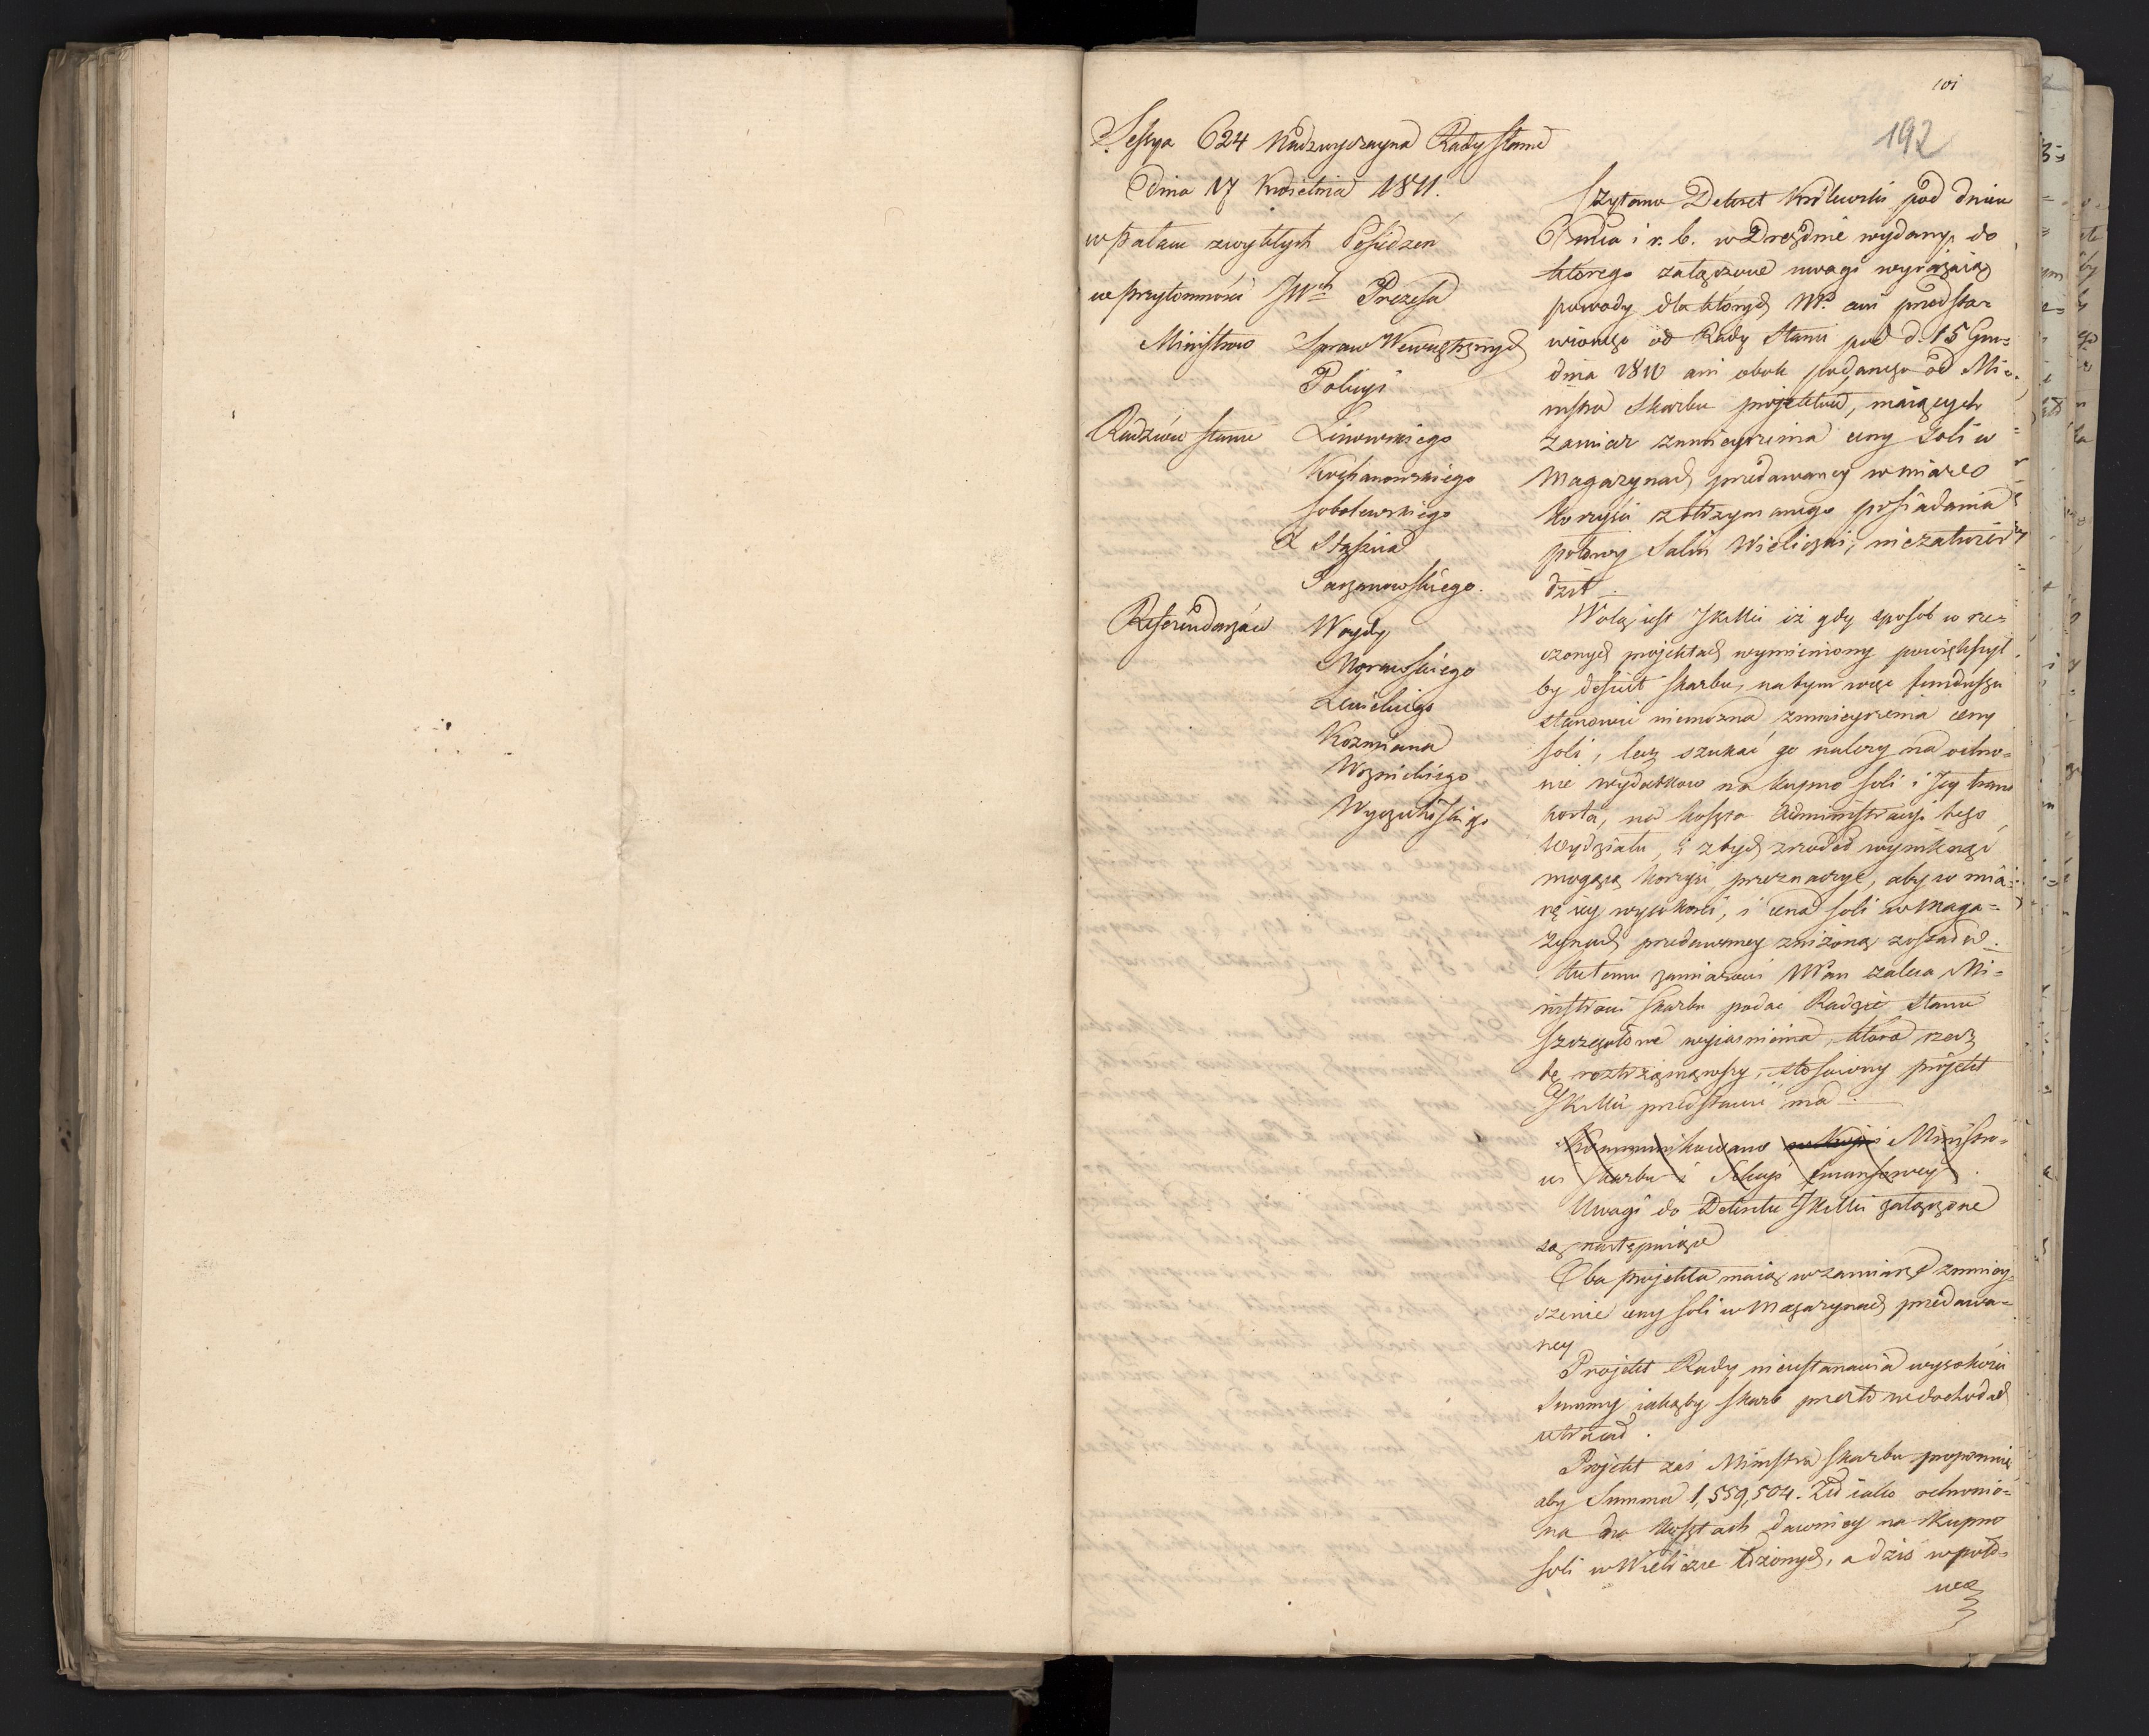 101
192
Sessya 624 Nadzwyczayna Rady Stanu
Dnia 17 Kwietnia 1811.
w Pałacu zwykłych Posiedzeń
w przytomności JWch Prezesa
Ministrów Spraw Wewnętrznych
Policyi
Radzców Stanu Linowskiego
Kochanowskiego
Sobolewskiego
X Staszica
Referendarzów Woydy
Morawskiego
Lewickiego
Kozmiana
Woznickiego
Wyczechowskiego
Czytano Dekret Królewski pod dniem
i r. b. w Dreznie wydany, do
którego załączone uwagi wyrażaią
powody dla których NPan ani przedsta-
wionego od Rady Stanu pod d. 15 Gru-
dnia 1810 ani obok podanego od Mi-
nistra Skarbu projektów, maiących
zamiar zmnieyszenia ceny Soli w
Magazynach przedawaney w miarę
korzyści z otrzymanego posiadania
połowy Salin Wieliczki, niezatwier-
dził.
Wolą iest JKMci iż gdy sposób w rze-
czonych projektach wymieniony powiększył
by deficit skarbu, na tym więc funduszu
stanowić niemożna zmnieyszenia ceny
soli, lecz szukać go należy na ochro-
nie wydatków na kupno soli i Jey trans
portu, na koszta Administracyi tego
Wydziału, i z tych zrodeł wyniknąć
mogącą korzyść przeznaczyć, aby w mia-
rę iey wysokości, i cena soli w Maga-
zynach przedawaney zniżoną została.
Ku temu zamiarowi NPan zaleca Mi-
nistrowi Skarbu podać Radzie Stanu
szczegółowe wyiasnienia, która rzecz
tę roztrząsnąwszy, stosowny projekt
JKMci przedstawić ma.
Kommunikowano w kopii Ministro-
wi Skarbu i Sekcyi finansowey.
Uwagi do Dekretu JKMci załączone
są następuiące
Oba projekta maią w zamiarze zmniey-
szenie ceny soli w Magazynach przedawa-
ney
Projekt Rady nieustanawia wysokości
Summy iakąby skarb przez to w dochodach
utracał.
Projekt zaś Ministra Skarbu proponuie
aby Summa 1,559,504. Zł iako ochronio-
na na kosztach dawniey na kupno
soli w Wieliczce łożonych, a dziś w poło-
wie